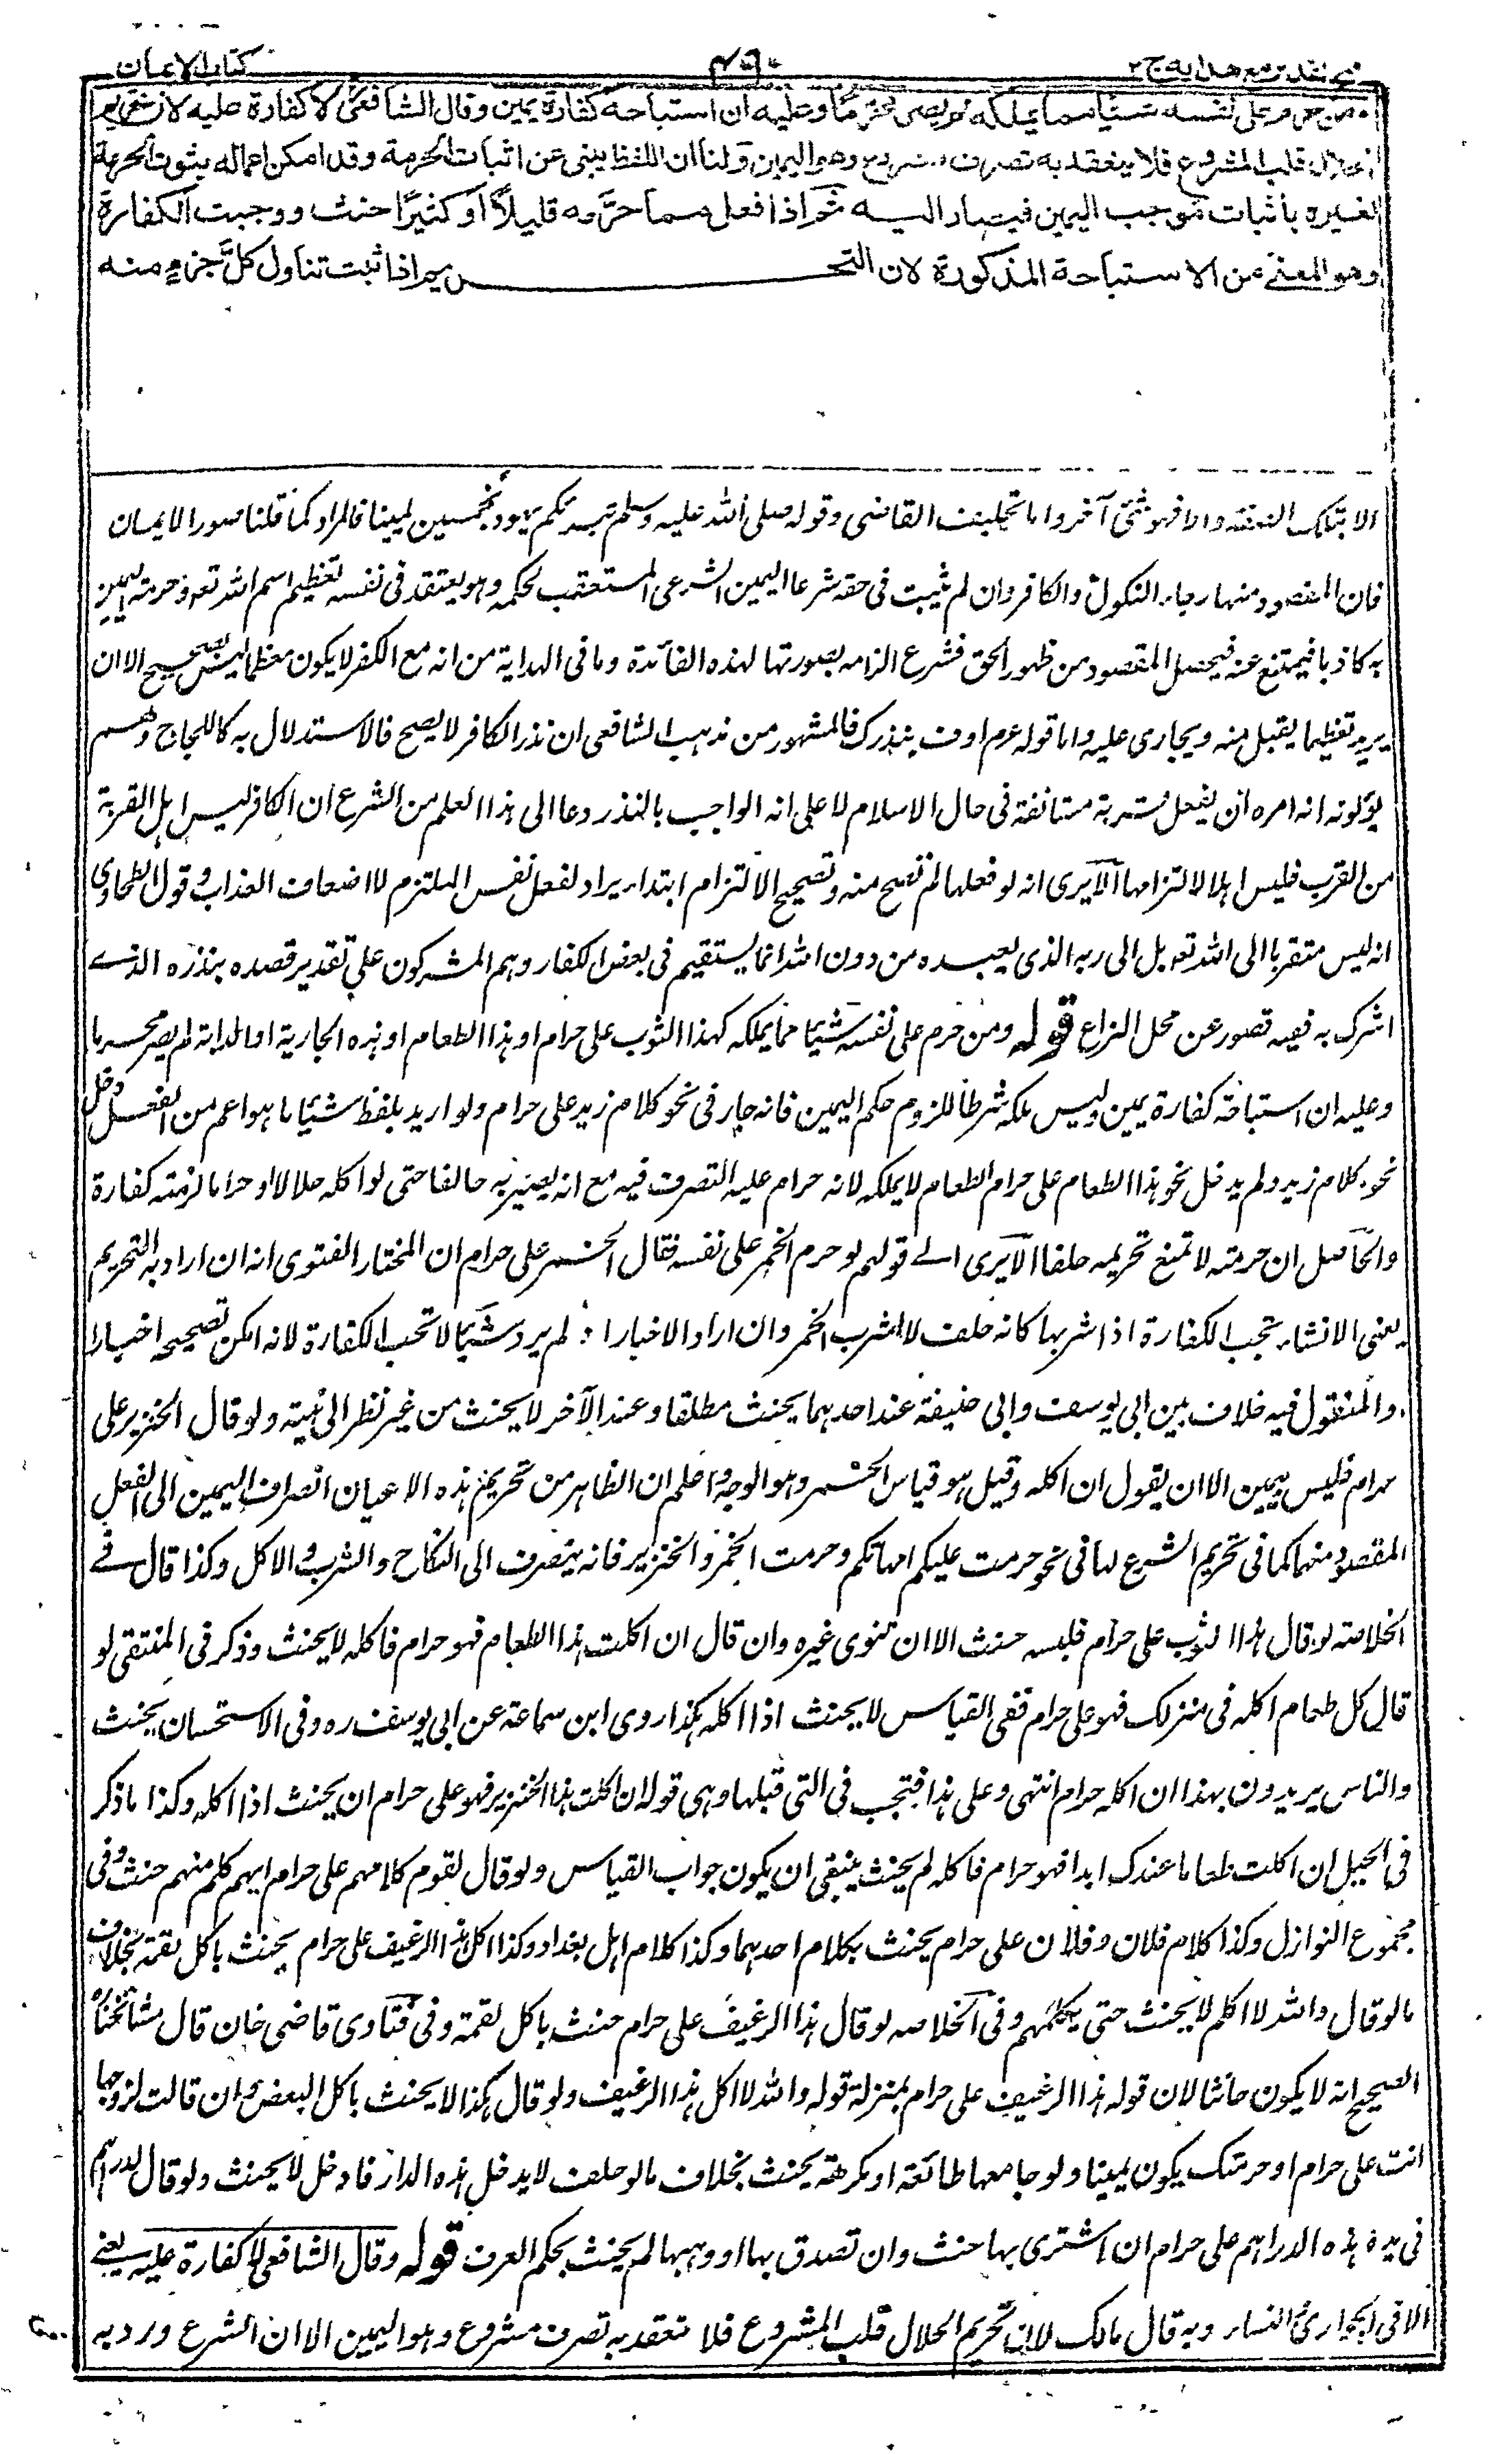 فتح القدير مع هدايه ج ٢ ٤٩٠ كتاب الايمان
ومن حرم على نفسه شيئا مما يملكه لم يصر محرما وعليه ان استباحه كفارة يمين وقال الشافعي لا كفارة عليه لان تحريم
الحلال قلب المشروع فلا ينعقد به تصرف مشروع وهو اليمين ولنا ان اللفظ ينبئ عن اثبات الحرمة وقد امكن اعماله بثبوت الحرمة
لغيره باثبات موجب اليمين فيصار اليه ثم اذا فعل مما حرمه قليلا او كثيرا حنث ووجبت الكفارة
وهو المعنى من الاستباحة المذكورة لان التحريم اذا ثبت تناول كل جزء منه
الا بتلك الصفة والا فهو شئ آخر واما تحليف القاضي وقوله صلى الله عليه وسلم تبرئكم يهود بخمسين يمينا فالمراد كما قلنا صور الايمان
فان المقصود منها رجاء النكول والكافر وان لم يثبت في حقه شرعا اليمين الشرعي المستعقب لحكمه وهو يعتقد في نفسه تعظيم اسم الله تعه وحرمة اليمين
به كاذبا فيمتنع عنه فيحصل المقصود من ظهور الحق فشرع الزامه بصورتها لهذه الفائدة وما في الهداية من انه مع الكفر لا يكون معظما ليس بصحيح الا ان
يريد تعظيما يقبل منه ويجازى عليه واما قوله عم اوف بنذرك فالمشهور من مذهب الشافعي ان نذر الكافر لا يصح فالاستدلال به كاللجاج وهم
يؤلونه انه امره ان يفعل قربة مستانفة في حال الاسلام لا على انه الواجب بالنذر ودعا الى هذا العلم من الشرع ان الكافر ليس اهل القربة
من القرب فليس اهلا لالتزامها الا يرى انه لو فعلها لم تصح منه وتصحيح الالتزام ابتداء يراد لفعل نفس الملتزم لا اضعاف العذاب وقول الطحاوى
انه ليس متقربا الى الله تعه بل الى ربه الذى يعبده من دون الله انما يستقيم في بعض الكفار وهم المشركون على تقدير قصده بنذره الذى
اشرك به ففيه قصور عن محل النزاع قوله ومن حرم على نفسه شيئا مما يملكه كهذا الثوب على حرام او هذا الطعام او هذه الجارية او الدابة لم يصر محرما
وعليه ان استباحه كفارة يمين وليس ملكه شرطا للزوم حكم اليمين فانه جار في نحو كلام زيد على حرام ولو اريد بلفظ شيئا ما هو اعم من الفعل دخل
نحو كلام زيد ولم يدخل نحو هذا الطعام على حرام لطعام لا يملكه لانه حرام عليه التصرف فيه مع انه يصير به حالفا حتى لو اكله حلالا او حراما لزمته كفارة
والحاصل ان حرمته لا تمنع تحريمه حلفا الا يرى الى قولهم لو حرم الخمر على نفسه فقال الخمر على حرام ان المختار للفتوى انه ان اراد به التحريم
يعنى الانشاء تجب الكفارة اذا شربها كانه حلف لا اشرب الخمر وان اراد الاخبار او لم يرد شيئا لا تجب الكفارة لانه امكن تصحيحه اخبارا
والمنقول فيه خلاف بين ابي يوسف وابي حنيفة عند احدهما يحنث مطلقا وعند الآخر لا يحنث من غير نظر الى نيته ولو قال الخنزير على
حرام فليس بيمين الا ان يقول ان اكله وقيل هو قياس الخمر وهو الوجه واعلم ان الظاهر من تحريم هذه الاعيان انصراف اليمين الى الفعل
المقصود منها كما في تحريم الشرع لها في نحو حرمت عليكم امهاتكم وحرمت الخمر والخنزير فانه ينصرف الى النكاح والشرب والاكل وكذا قال في
الخلاصه لو قال هذا الثوب على حرام فلبسه حنث الا ان ينوى غيره وان قال ان اكلت هذا الطعام فهو حرام فاكله لا يحنث وذكر في المنتقى لو
قال كل طعام اكله في منزلك فهو على حرام ففي القياس لا يحنث اذا اكله هكذا روى ابن سماعة عن ابي يوسف ره وفي الاستحسان يحنث
والناس يريدون بهذا ان اكله حرام انتهى وعلى هذا فيجب في التى قبلها وهى قوله ان اكلت هذا الخنزير فهو على حرام ان يحنث اذا اكله وكذا ما ذكر
في الحيل ان اكلت طعاما عندك ابدا فهو حرام فاكله لم يحنث ينبغى ان يكون جواب القياس ولو قال لقوم كلامهم على حرام ايهم كلم منهم حنث وفي
مجموع النوازل وكذا كلام فلان وفلان على حرام يحنث بكلام احدهما وكذا كلام اهل بغداد وكذا اكل هذا الرغيف على حرام يحنث باكل لقمة بخلاف
ما لو قال والله لا اكلم لا يحنث حتى يكلمهم وفي الخلاصه لو قال هذا الرغيف على حرام حنث باكل لقمة وفي فتاوى قاضى خان قال مشائخنا
الصحيح انه لا يكون حانثا لان قوله هذا الرغيف على حرام بمنزلة قوله والله لا اكل هذا الرغيف ولو قال هكذا لا يحنث باكل البعض وان قالت لزوجها
انت على حرام او حرمتك يكون يمينا ولو جامعها طائعة او مكرهة يحنث بخلاف ما لو حلف لا يدخل هذه الدار فادخل لا يحنث ولو قال لدراهم
في يده هذه الدراهم على حرام ان اشترى بها حنث وان تصدق بها او وهبها لم يحنث بحكم العرف قوله وقال الشافعي لا كفارة عليه يعنى
الا في الجوارى والنساء وبه قال مالك لان تحريم الحلال قلب المشروع فلا ينعقد به تصرف مشروع وهو اليمين الا ان الشرع ورد به